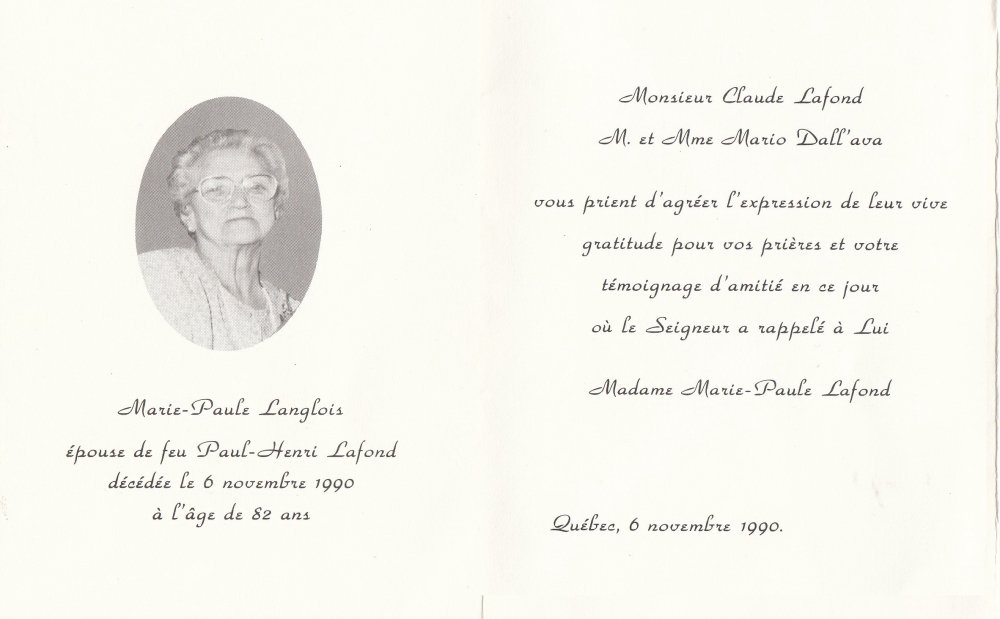 Marie-Paule Langlois
épouse de feu Paul-Henri Lafond
décédée le 6 novembre 1990
à l'âge de 82 ans
Monsieur Claude Lafond
M. et Mme Mario Dall'ava
vous prient d'agréer l'expression de leur vive
gratitude pour vos prières et votre
témoignage d'amitié en ce jour
où le Seigneur a rappelé à Lui
Madame Marie-Paule Lafond
Québec, 6 novembre 1990.